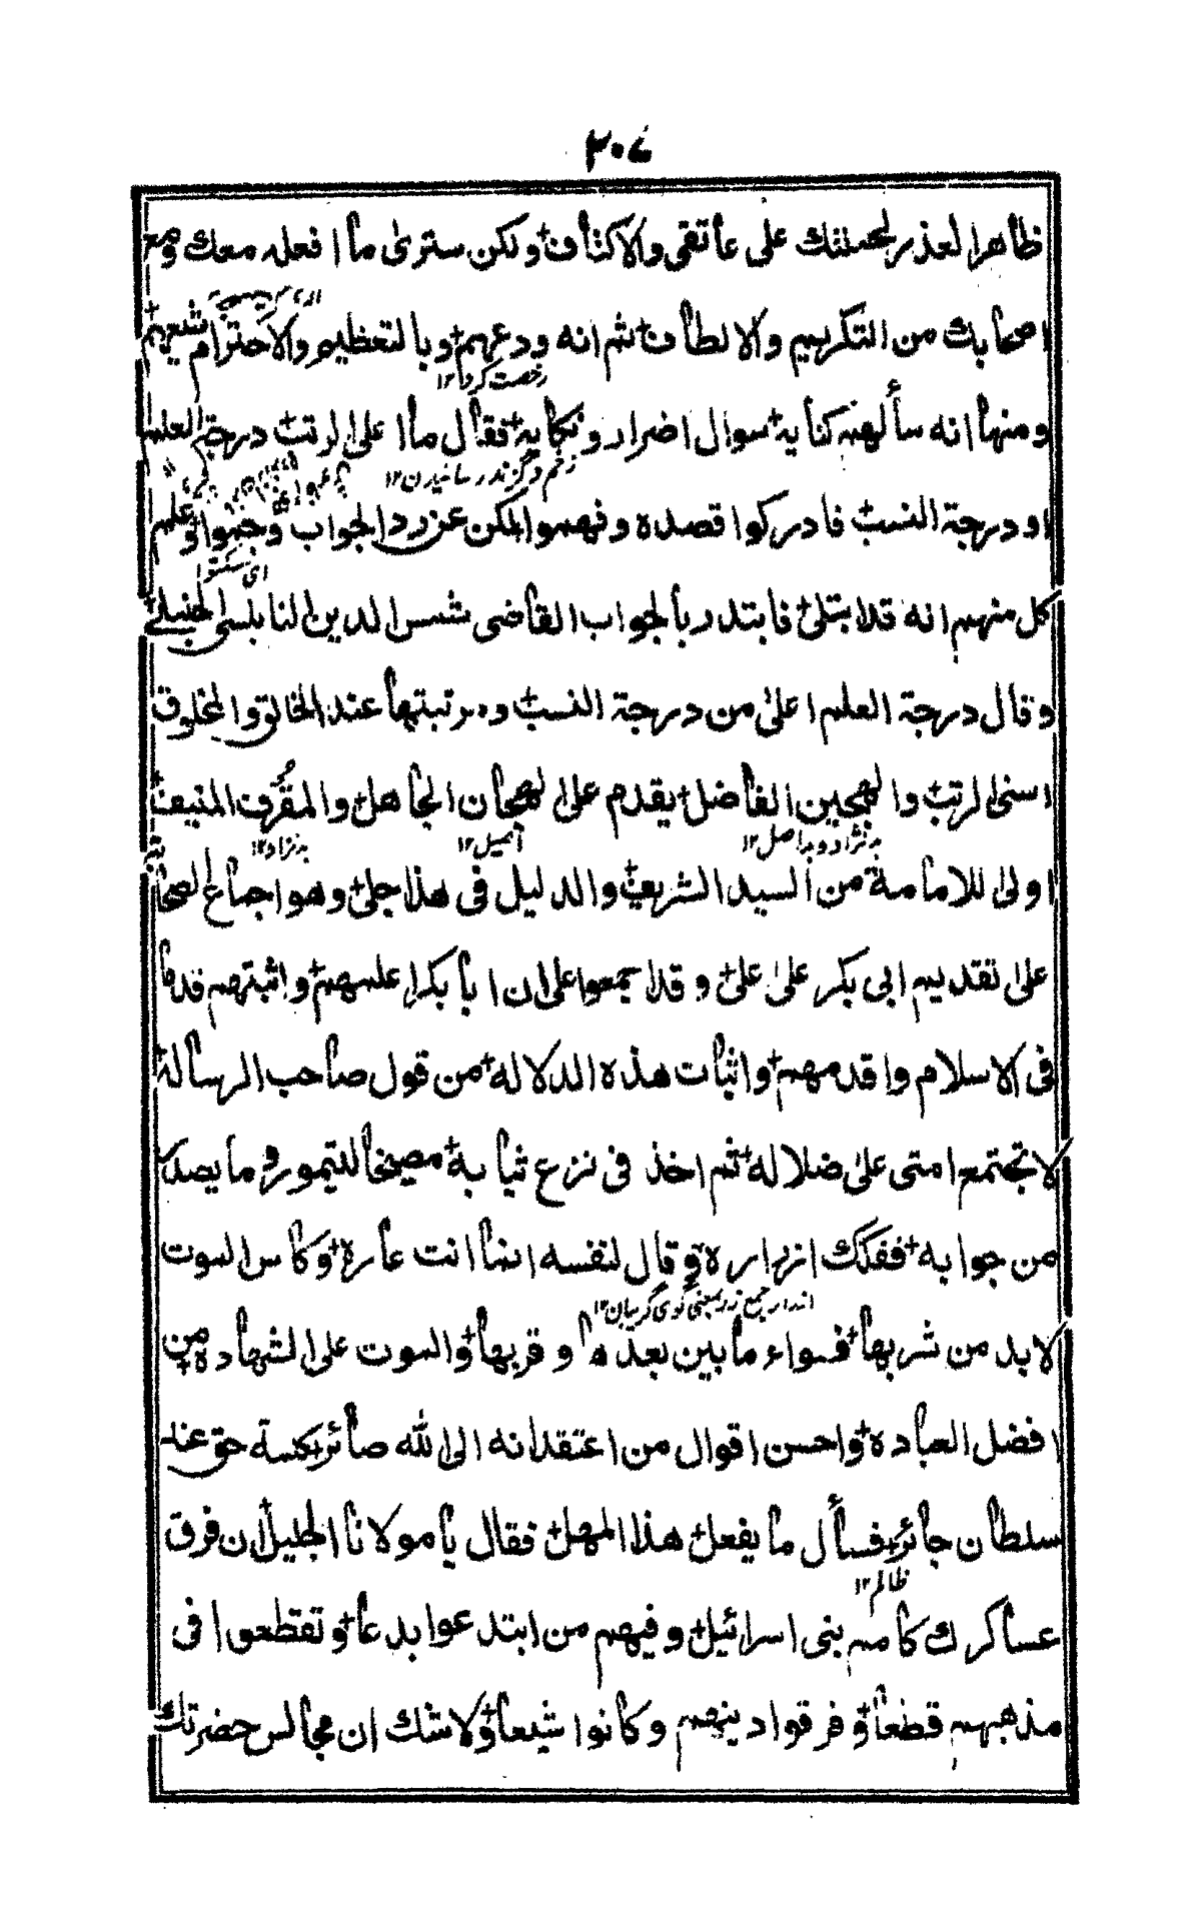 ٣٠٧
ظاهر العذر لحملتك على عاتقى والاكتاف ولكن سترى ما افعله معك ومع
اصحابك من التكريم والالطاف ثم انه ودعهم وبالتعظيم والاحترام شيعهم
رخصت كرد١٢
ومنها انه سألهم كناية سوال اضرار ونكاية فقال ما اعلى الرتب درجة العلم
زخم وگزند رسانيدن١٢
او درجة النسب فادركوا قصده وفهموا لكن عن رد الجواب وجموا وعلم
اى سكتوا
كل منهم انه قد ابتلى فابتدر بالجواب القاضى شمس الدين النابلسى الحنبلى
وقال درجة العلم اعلى من درجة النسب ومرتبتها عند الخالق والمخلوق
اسنى الرتب والهجين الفاضل يقدم على الهجان الجاهل والمقرف المنيف
بدنژاد وبد اصل١٢ اصيل١٢ بدنژاد١٢
اولى للامامة من السيد الشريف والدليل فى هذا جلى وهو اجماع الصحابة
على تقديم ابى بكر على على وقد اجمعوا على ان ابا بكر اعلمهم واثبتهم قدما
فى الاسلام واقدمهم واثبات هذه الدلاله من قول صاحب الرسالة
لا تجتمع امتى على ضلاله ثم اخذ فى نزع ثيابه مصيخا لتيمور وما يصدر
من جوابه ففكك ازراره وقال لنفسه انما انت عارة وكاس الموت
ازرار جمع زر بمعنى گوى گريبان١٢
لابد من شربها فسواء ما بين بعدها وقربها والموت على الشهاده من
افضل العباده واحسن اقوال من اعتقد انه الى الله صائر كلمة حق عند
سلطان جائر فسأل ما يفعل هذا المهمل فقال يا مولانا الجليل ان فرق
ظالم١٢
عساكرك كامم بنى اسرائيل وفيهم من ابتدعوا بدعا وتقطعوا فى
مذهبهم قطعا وفرقوا دينهم وكانوا شيعا ولاشك ان مجالس حضرتك